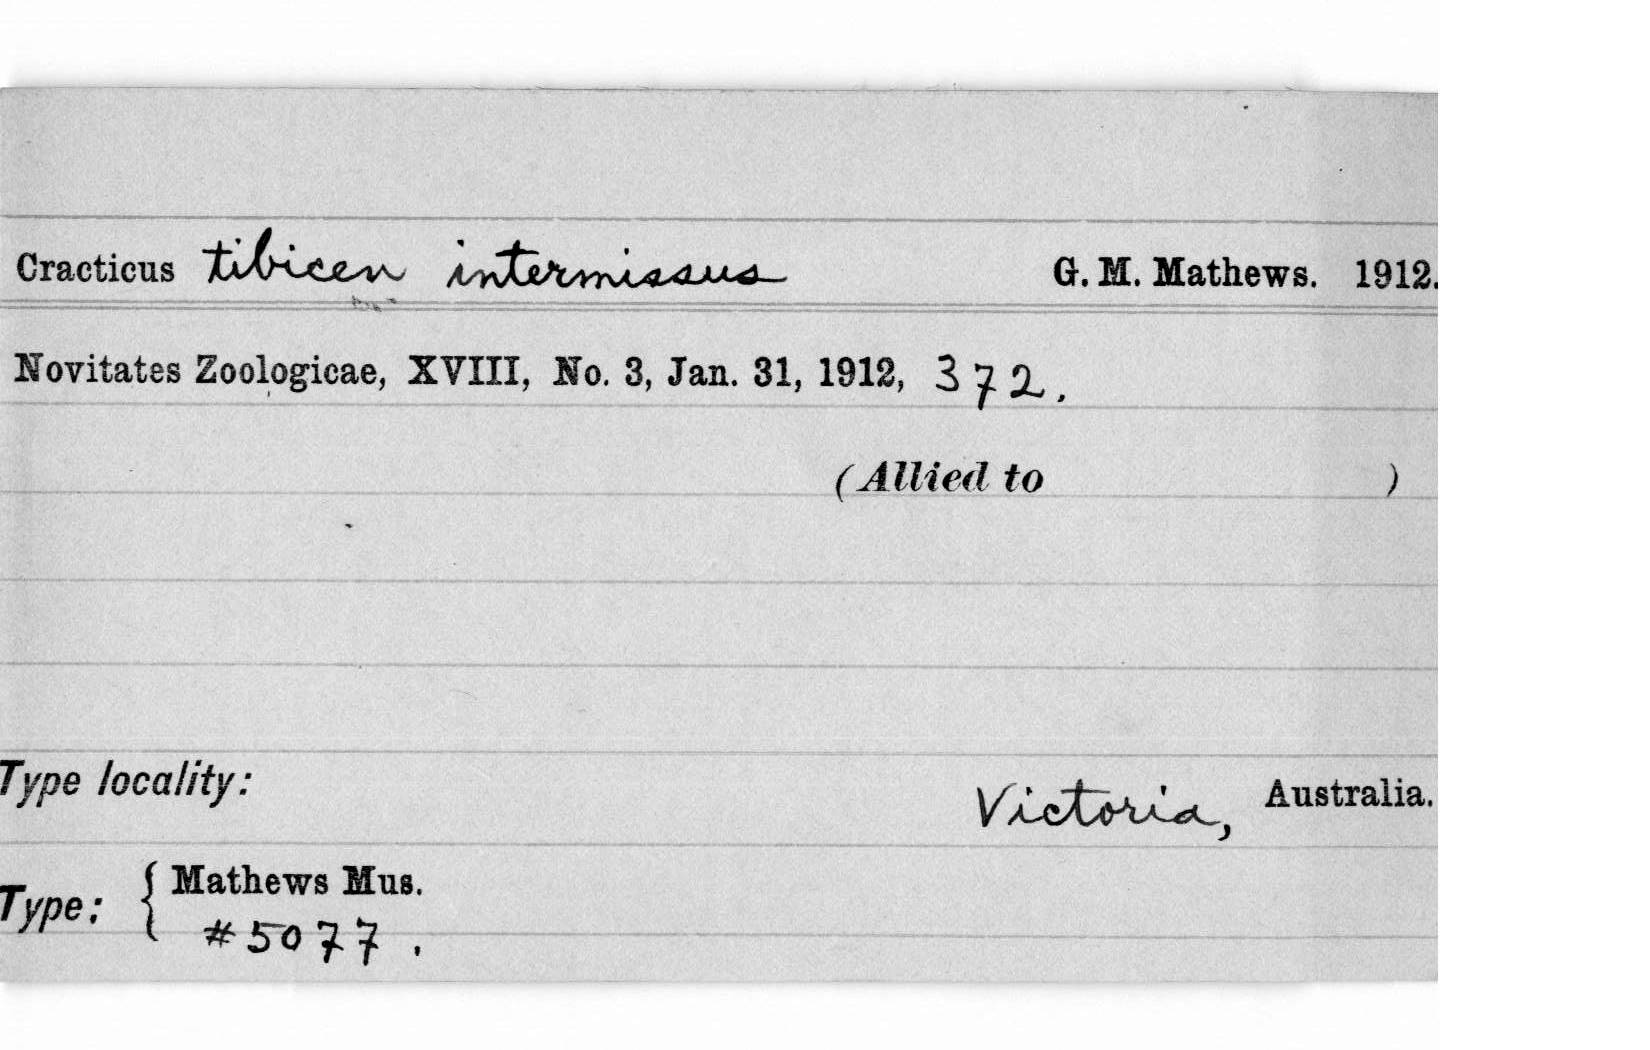 Cracticus tibicen intermissus G. M. Mathews. 1912.
Novitates Zoologicae, XVIII, No. 3, Jan. 31, 1912, 372.
(Allied to )
Type locality: Victoria, Australia.
Type: { Mathews Mus.
#5077.